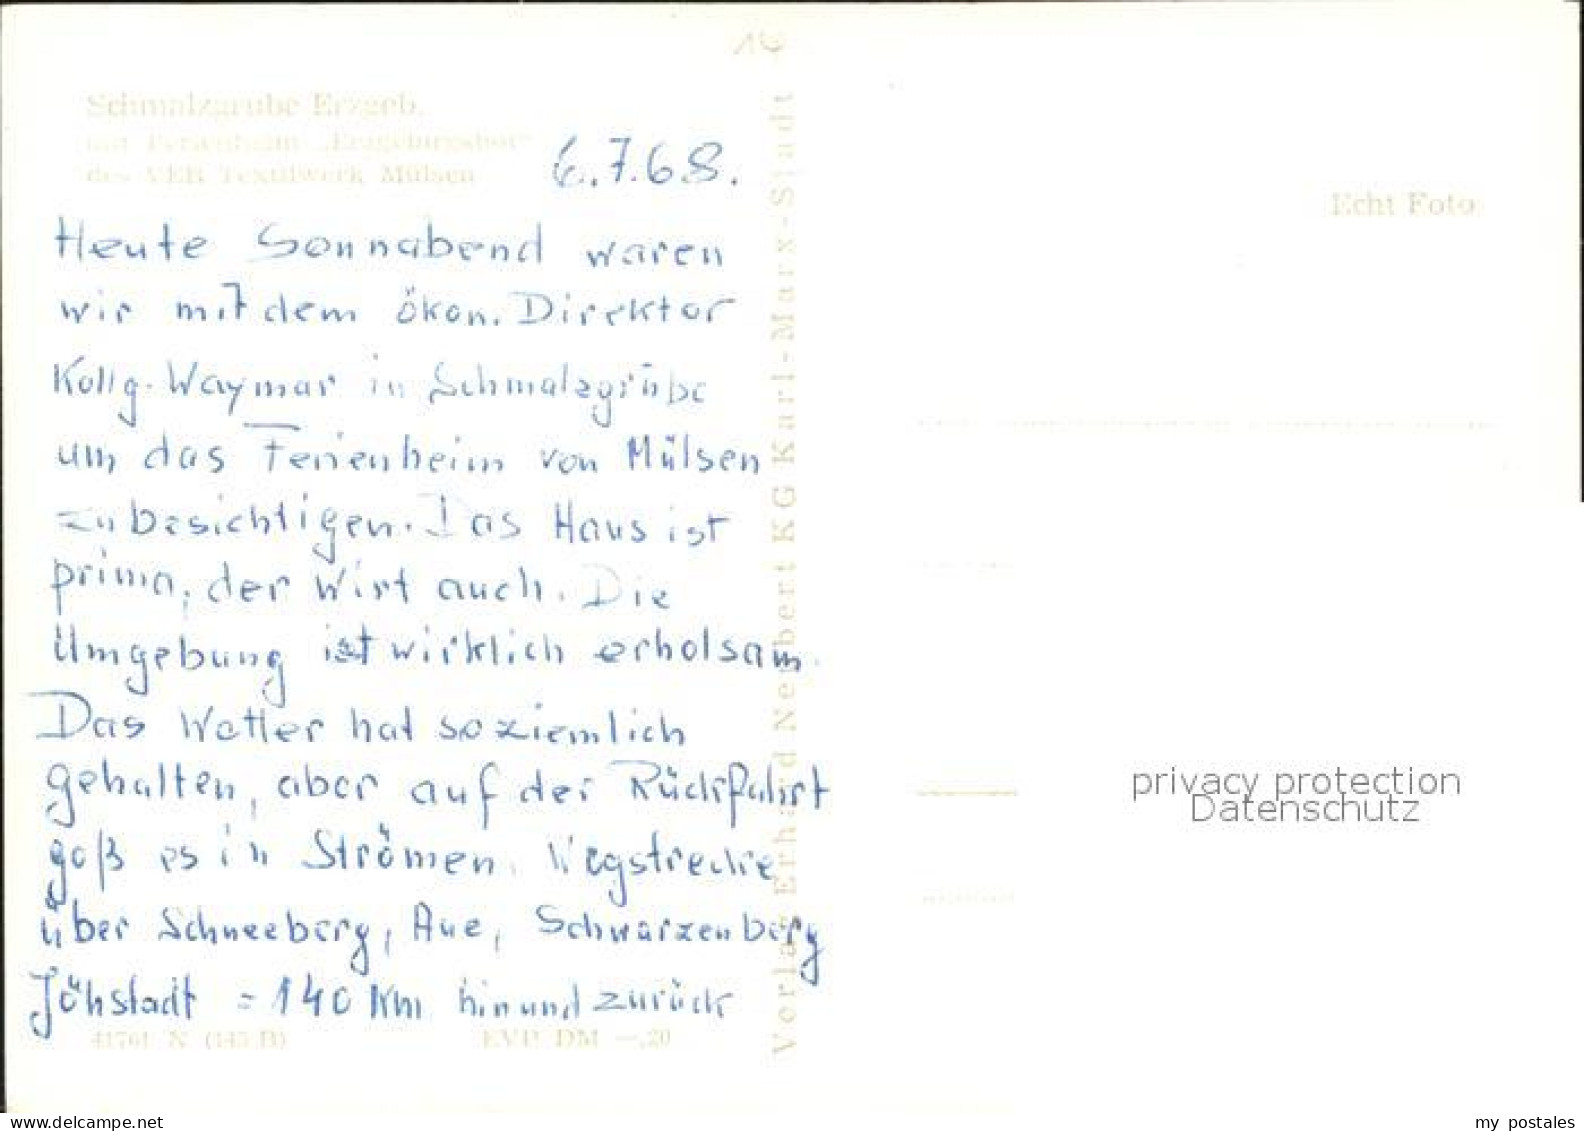 16
Schmalzgrube Erzgeb.
mit Ferienheim „Erzgebirgshof“
des VEB Textilwerk Mülsen
6.7.68.
Heute Sonnabend waren
wir mit dem ökon. Direktor
Kollg. Waymar in Schmalzgrube
um das Ferienheim von Mülsen
zu besichtigen. Das Haus ist
prima, der Wirt auch. Die
Umgebung ist wirklich erholsam.
Das Wetter hat so ziemlich
gehalten, aber auf der Rückfahrt
goß es in Strömen. Wegstrecke
über Schneeberg, Aue, Schwarzenberg
Jöhstadt = 140 km hin und zurück
41761 N (145 B) EVP DM —,20
Verlag Erhard Neubert KG Karl-Marx-Stadt
Echt Foto
privacy protection
Datenschutz
www.delcampe.net
my_postales